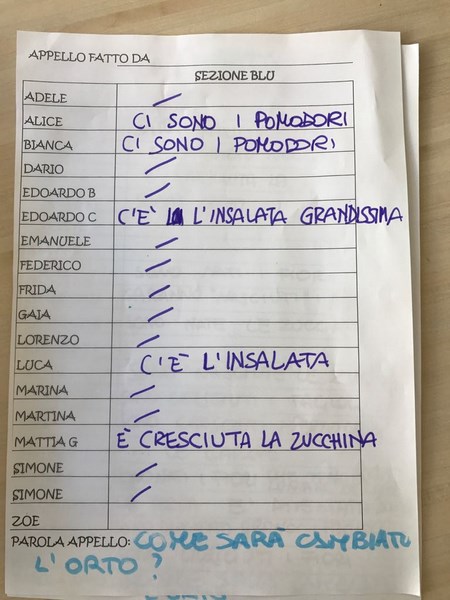 APPELLO FATTO DA
SEZIONE BLU
ADELE /
ALICE CI SONO I POMODORI
BIANCA CI SONO I POMODORI
DARIO /
EDOARDO B /
EDOARDO C C'È L'INSALATA GRANDISSIMA
EMANUELE /
FEDERICO /
FRIDA /
GAIA /
LORENZO /
LUCA C'È L'INSALATA
MARINA /
MARTINA /
MATTIA G È CRESCIUTA LA ZUCCHINA
SIMONE /
SIMONE /
ZOE
PAROLA APPELLO: COME SARÀ CAMBIATO
L'ORTO?